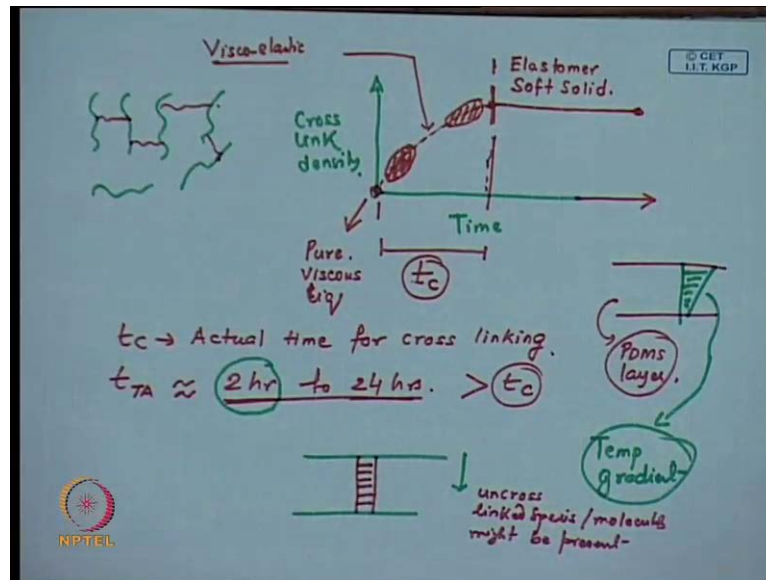 Visco-elastic
© CET
I.I.T. KGP
Elastomer
Soft Solid.
Cross
Link
density.
Time
Pure.
Viscous
liq
tc
tc → Actual time for cross linking.
tTA ≈ 2 hr to 24 hrs. > tc
PDMS
layer.
Temp
gradient
uncross
linked species/molecules
might be present
NPTEL